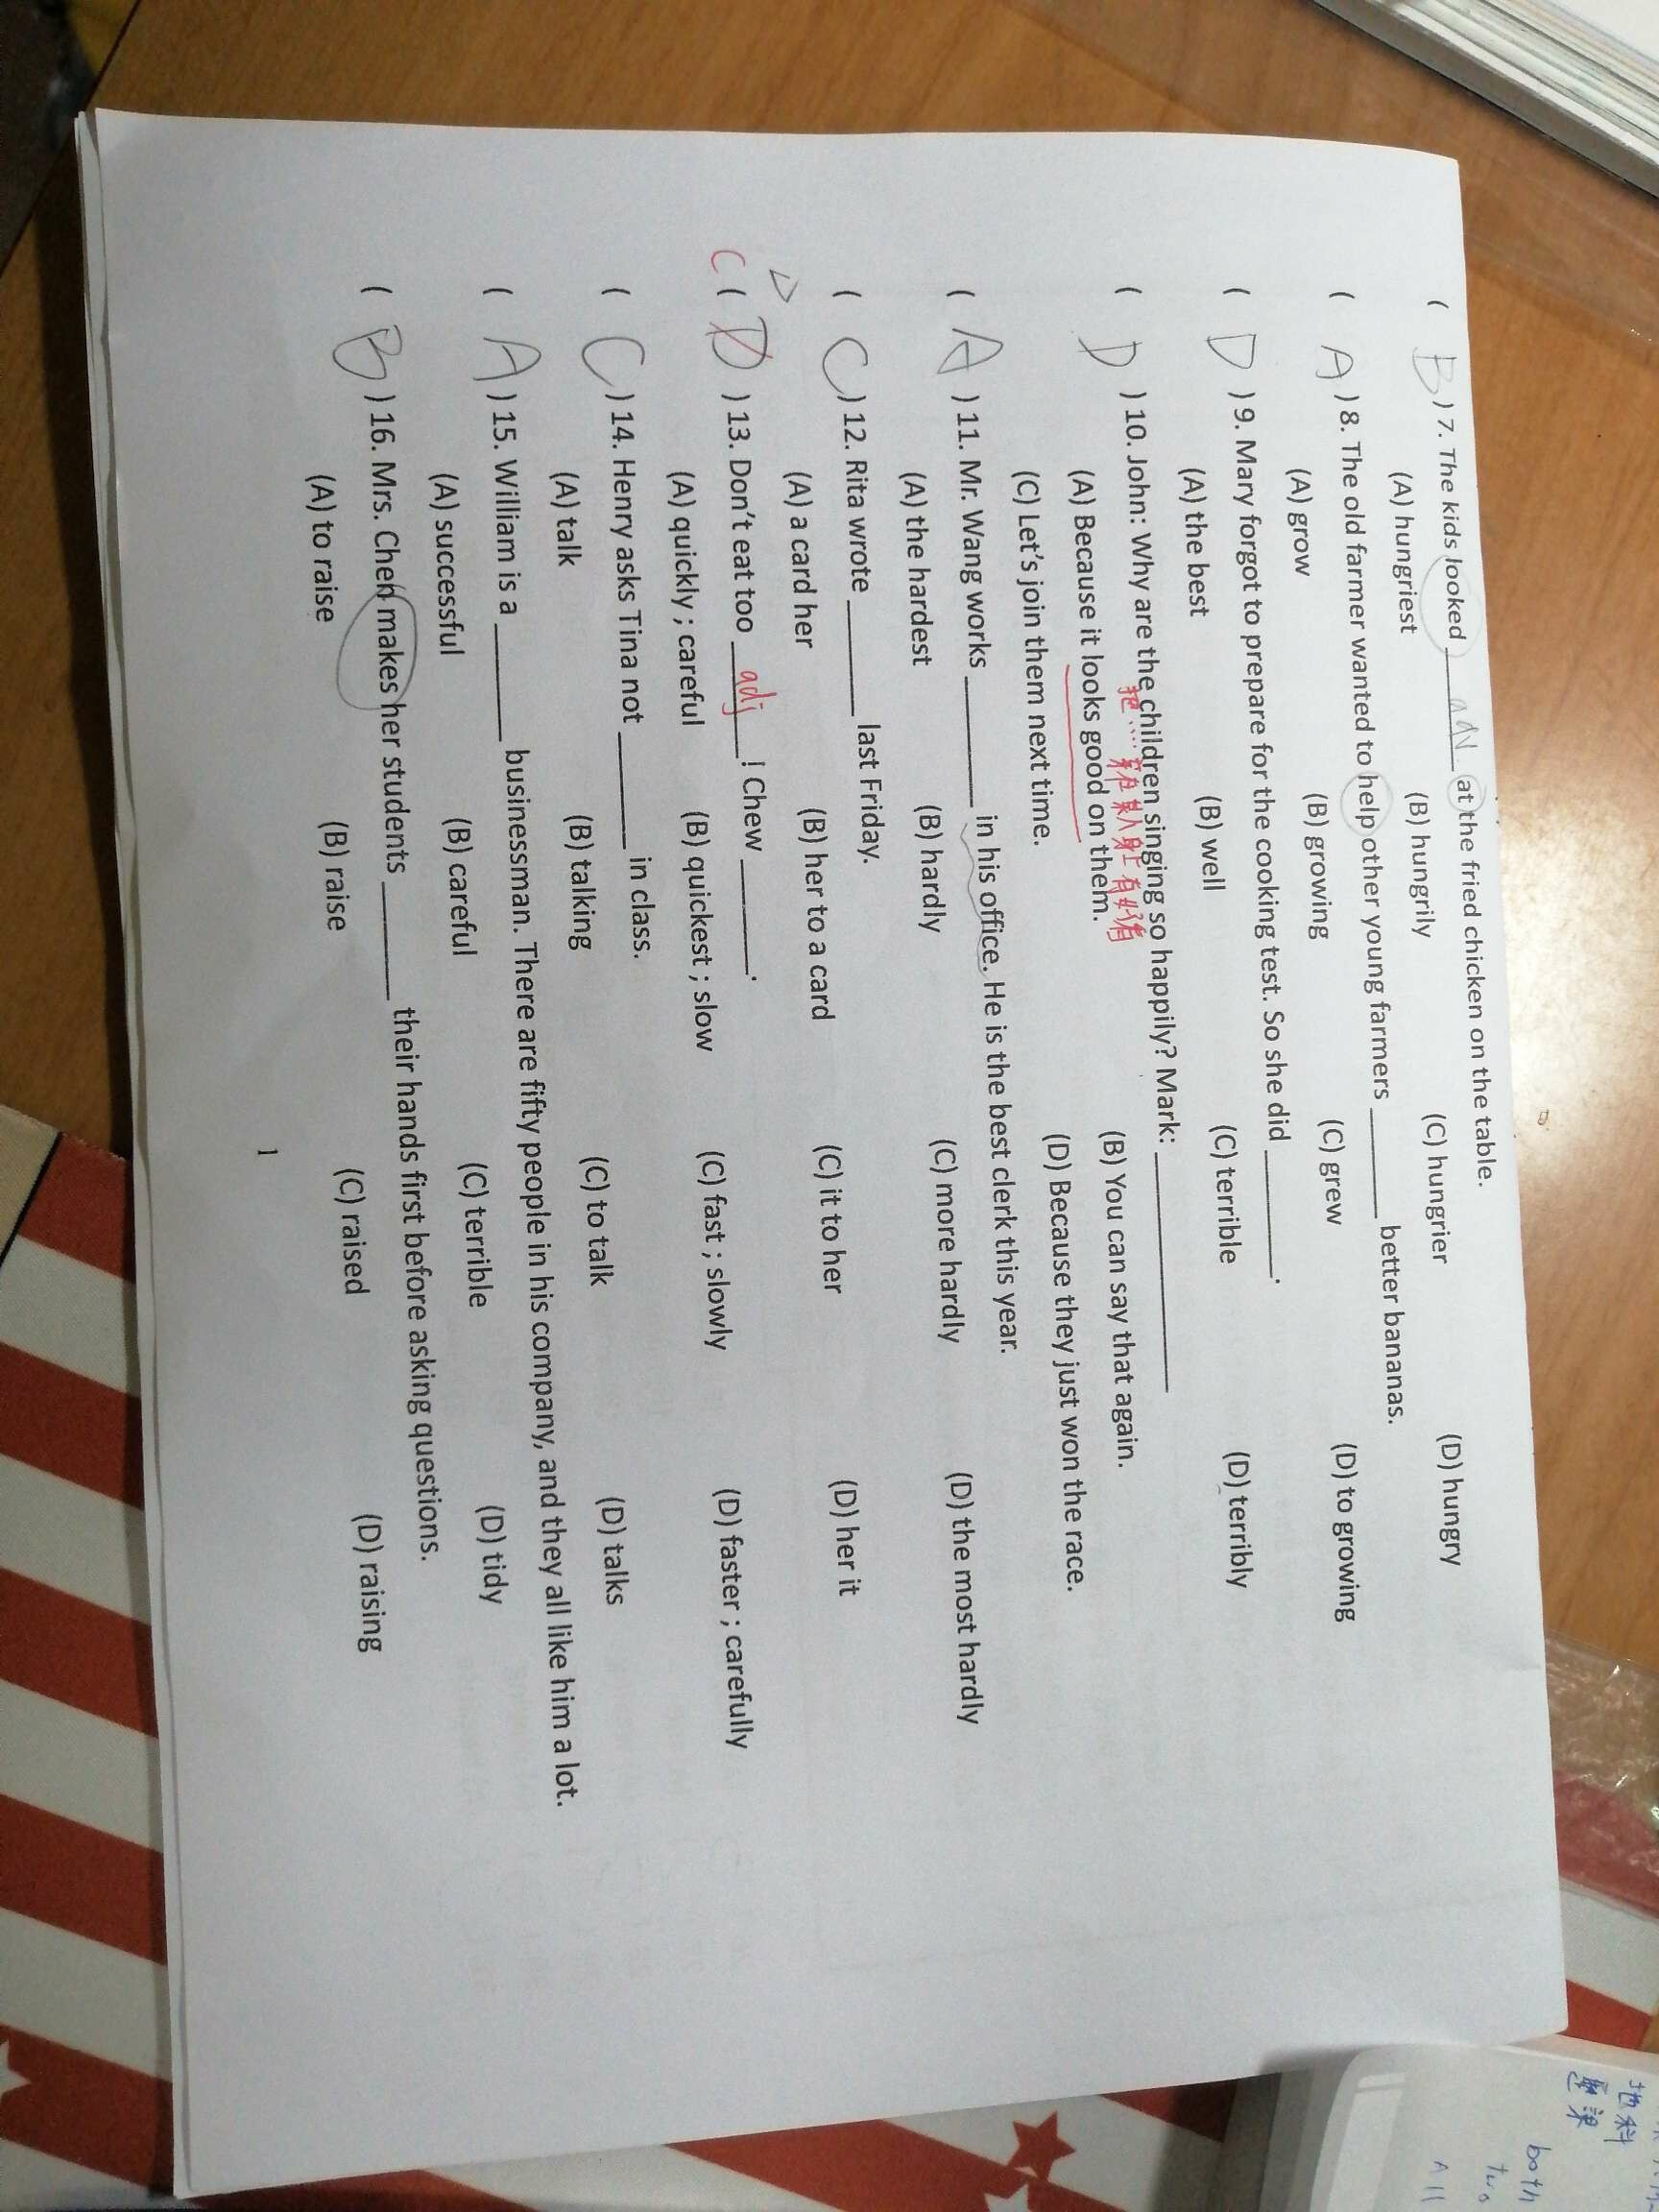 ( B ) 7. The kids looked ______ adv at the fried chicken on the table.
(A) hungriest (B) hungrily (C) hungrier (D) hungry
( A ) 8. The old farmer wanted to help other young farmers ______ better bananas.
(A) grow (B) growing (C) grew (D) to growing
( D ) 9. Mary forgot to prepare for the cooking test. So she did ______.
(A) the best (B) well (C) terrible (D) terribly
( D ) 10. John: Why are the children singing so happily? Mark: ____________
把…穿在某人身上有好看
(A) Because it looks good on them. (B) You can say that again.
(C) Let's join them next time. (D) Because they just won the race.
( A ) 11. Mr. Wang works ______ in his office. He is the best clerk this year.
(A) the hardest (B) hardly (C) more hardly (D) the most hardly
( C ) 12. Rita wrote ______ last Friday.
(A) a card her (B) her to a card (C) it to her (D) her it
D
C ( D ) 13. Don't eat too ______ adj ! Chew ______.
(A) quickly ; careful (B) quickest ; slow (C) fast ; slowly (D) faster ; carefully
( C ) 14. Henry asks Tina not ______ in class.
(A) talk (B) talking (C) to talk (D) talks
( A ) 15. William is a ______ businessman. There are fifty people in his company, and they all like him a lot.
(A) successful (B) careful (C) terrible (D) tidy
( B ) 16. Mrs. Chen makes her students ______ their hands first before asking questions.
(A) to raise (B) raise (C) raised (D) raising
1
地科
both
two
All